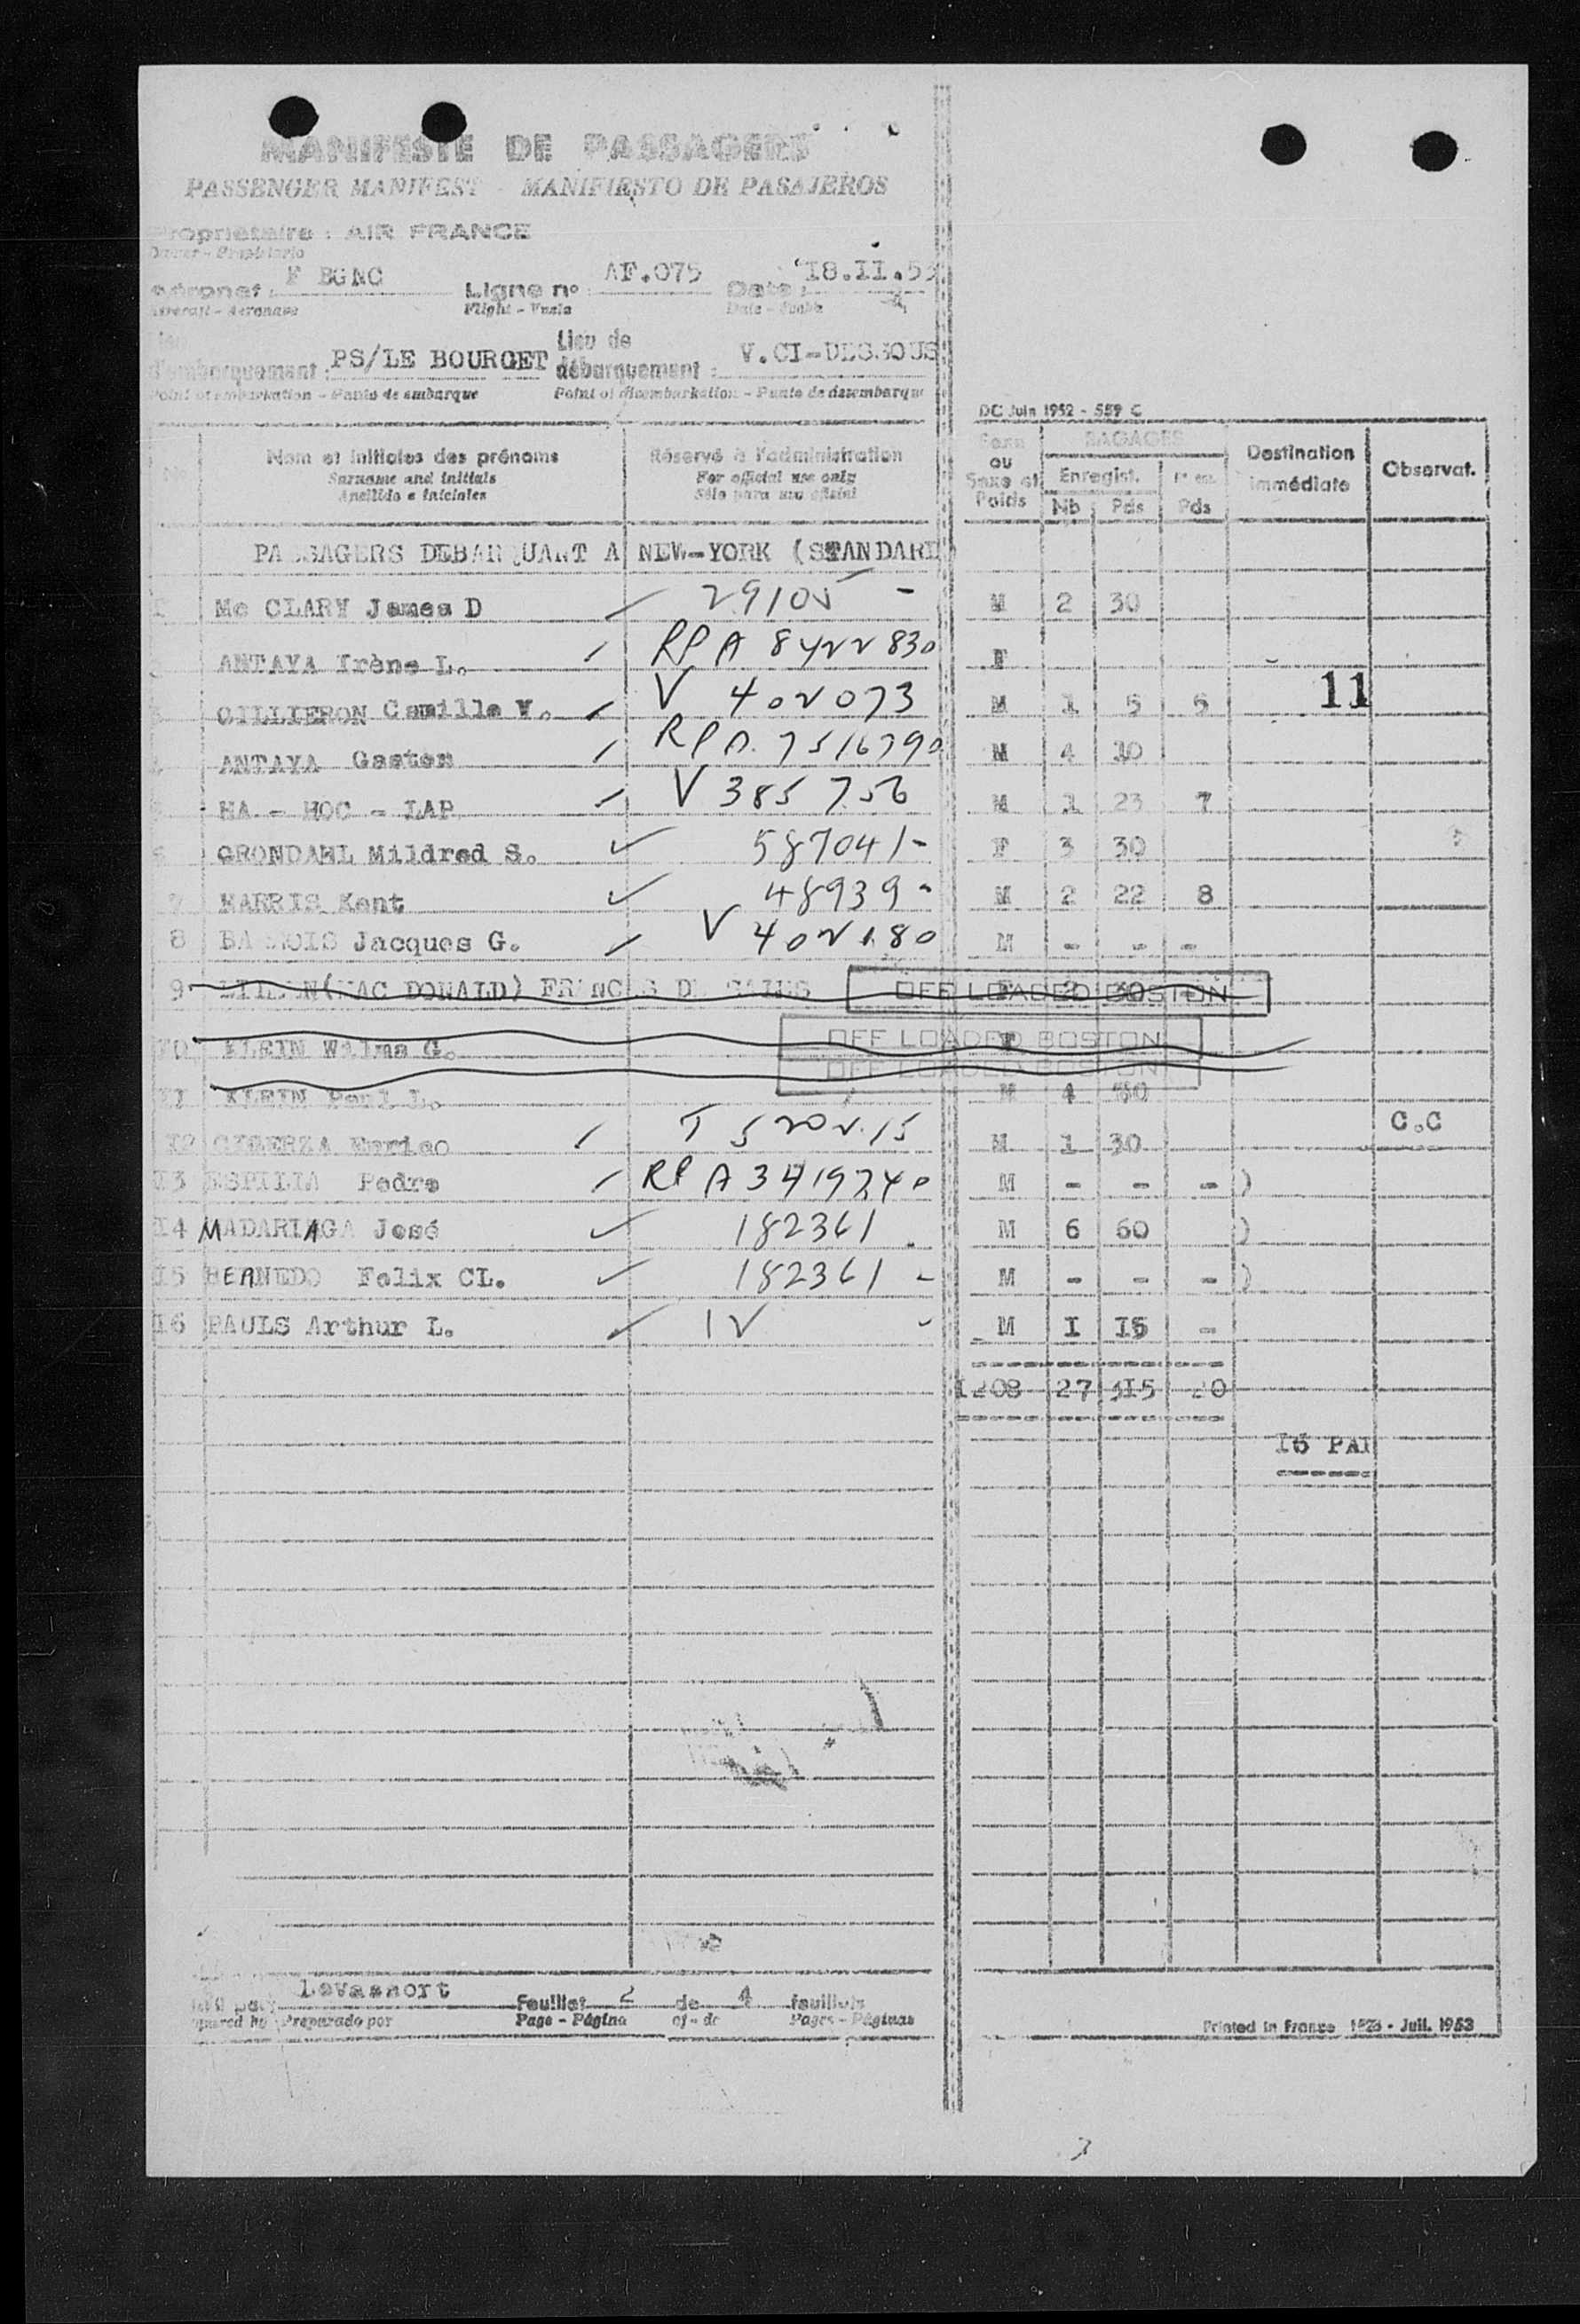 MANIFESTE DE PASSAGERS
PASSENGER MANIFEST - MANIFIESTO DE PASAJEROS
Propriétaire : AIR FRANCE
Owner - Propietario
Aéronef : F BGNC Ligne no AF.075 Date : 18.II.53
Aircraft - Aeronave Flight - Vuelo Date - Fecha
Lieu de
d'embarquement : PS/LE BOURGET débarquement : V.CI-DESSOUS
Point of embarkation - Punto de embarque Point of disembarkation - Punto de desembarque
DC Juin 1952 - 559 C
No Nom et initiales des prénoms Réservé à l'administration Sexe ou Sexe et Poids BAGAGES Destination immédiate Observat.
Surname and initials For official use only Enregist.
Apellido e iniciales Sólo para uso oficial Nb Pds Pds
PASSAGERS DEBARQUANT A NEW-YORK (STANDARD)
Mc CLARY James D 29105 - M 2 30
ANTAYA Irène L. RPA 8422830 F
GILLIERON Camille V. V 402073 M 1 5 5 11
ANTAYA Gaston RPA 7516790 M 4 30
HA - HOC - LAP V 385756 M 1 23 7
GRONDAHL Mildred S. 587041- F 3 30
7 HARRIS Kent 48939- M 2 22 8
8 Jacques G. V 402180 M - - -
9 (MAC DONALD) FRANCES DE SALES OFF LOADED BOSTON F 2 30 -
10 KLEIN Wilma G. OFF LOADED BOSTON F
11 KLEIN L. OFF LOADED BOSTON M 4 30
12 T 520215 M 1 30 C.C
13 ESPILIA Pedro RPA 3419740 M - - - )
14 MADARIAGA José 182361 M 6 60 )
15 BEANEDO Felix CL. 182361 - M - - - )
16 PAULS Arthur L. IV - M I I5 -
1208 27 315 20
16 PAX
Levasnort Feuillet 2 de 4 feuillets
Prepared by Preparado por Page - Página of - de Pages - Páginas
Printed in France - Juil. 1953